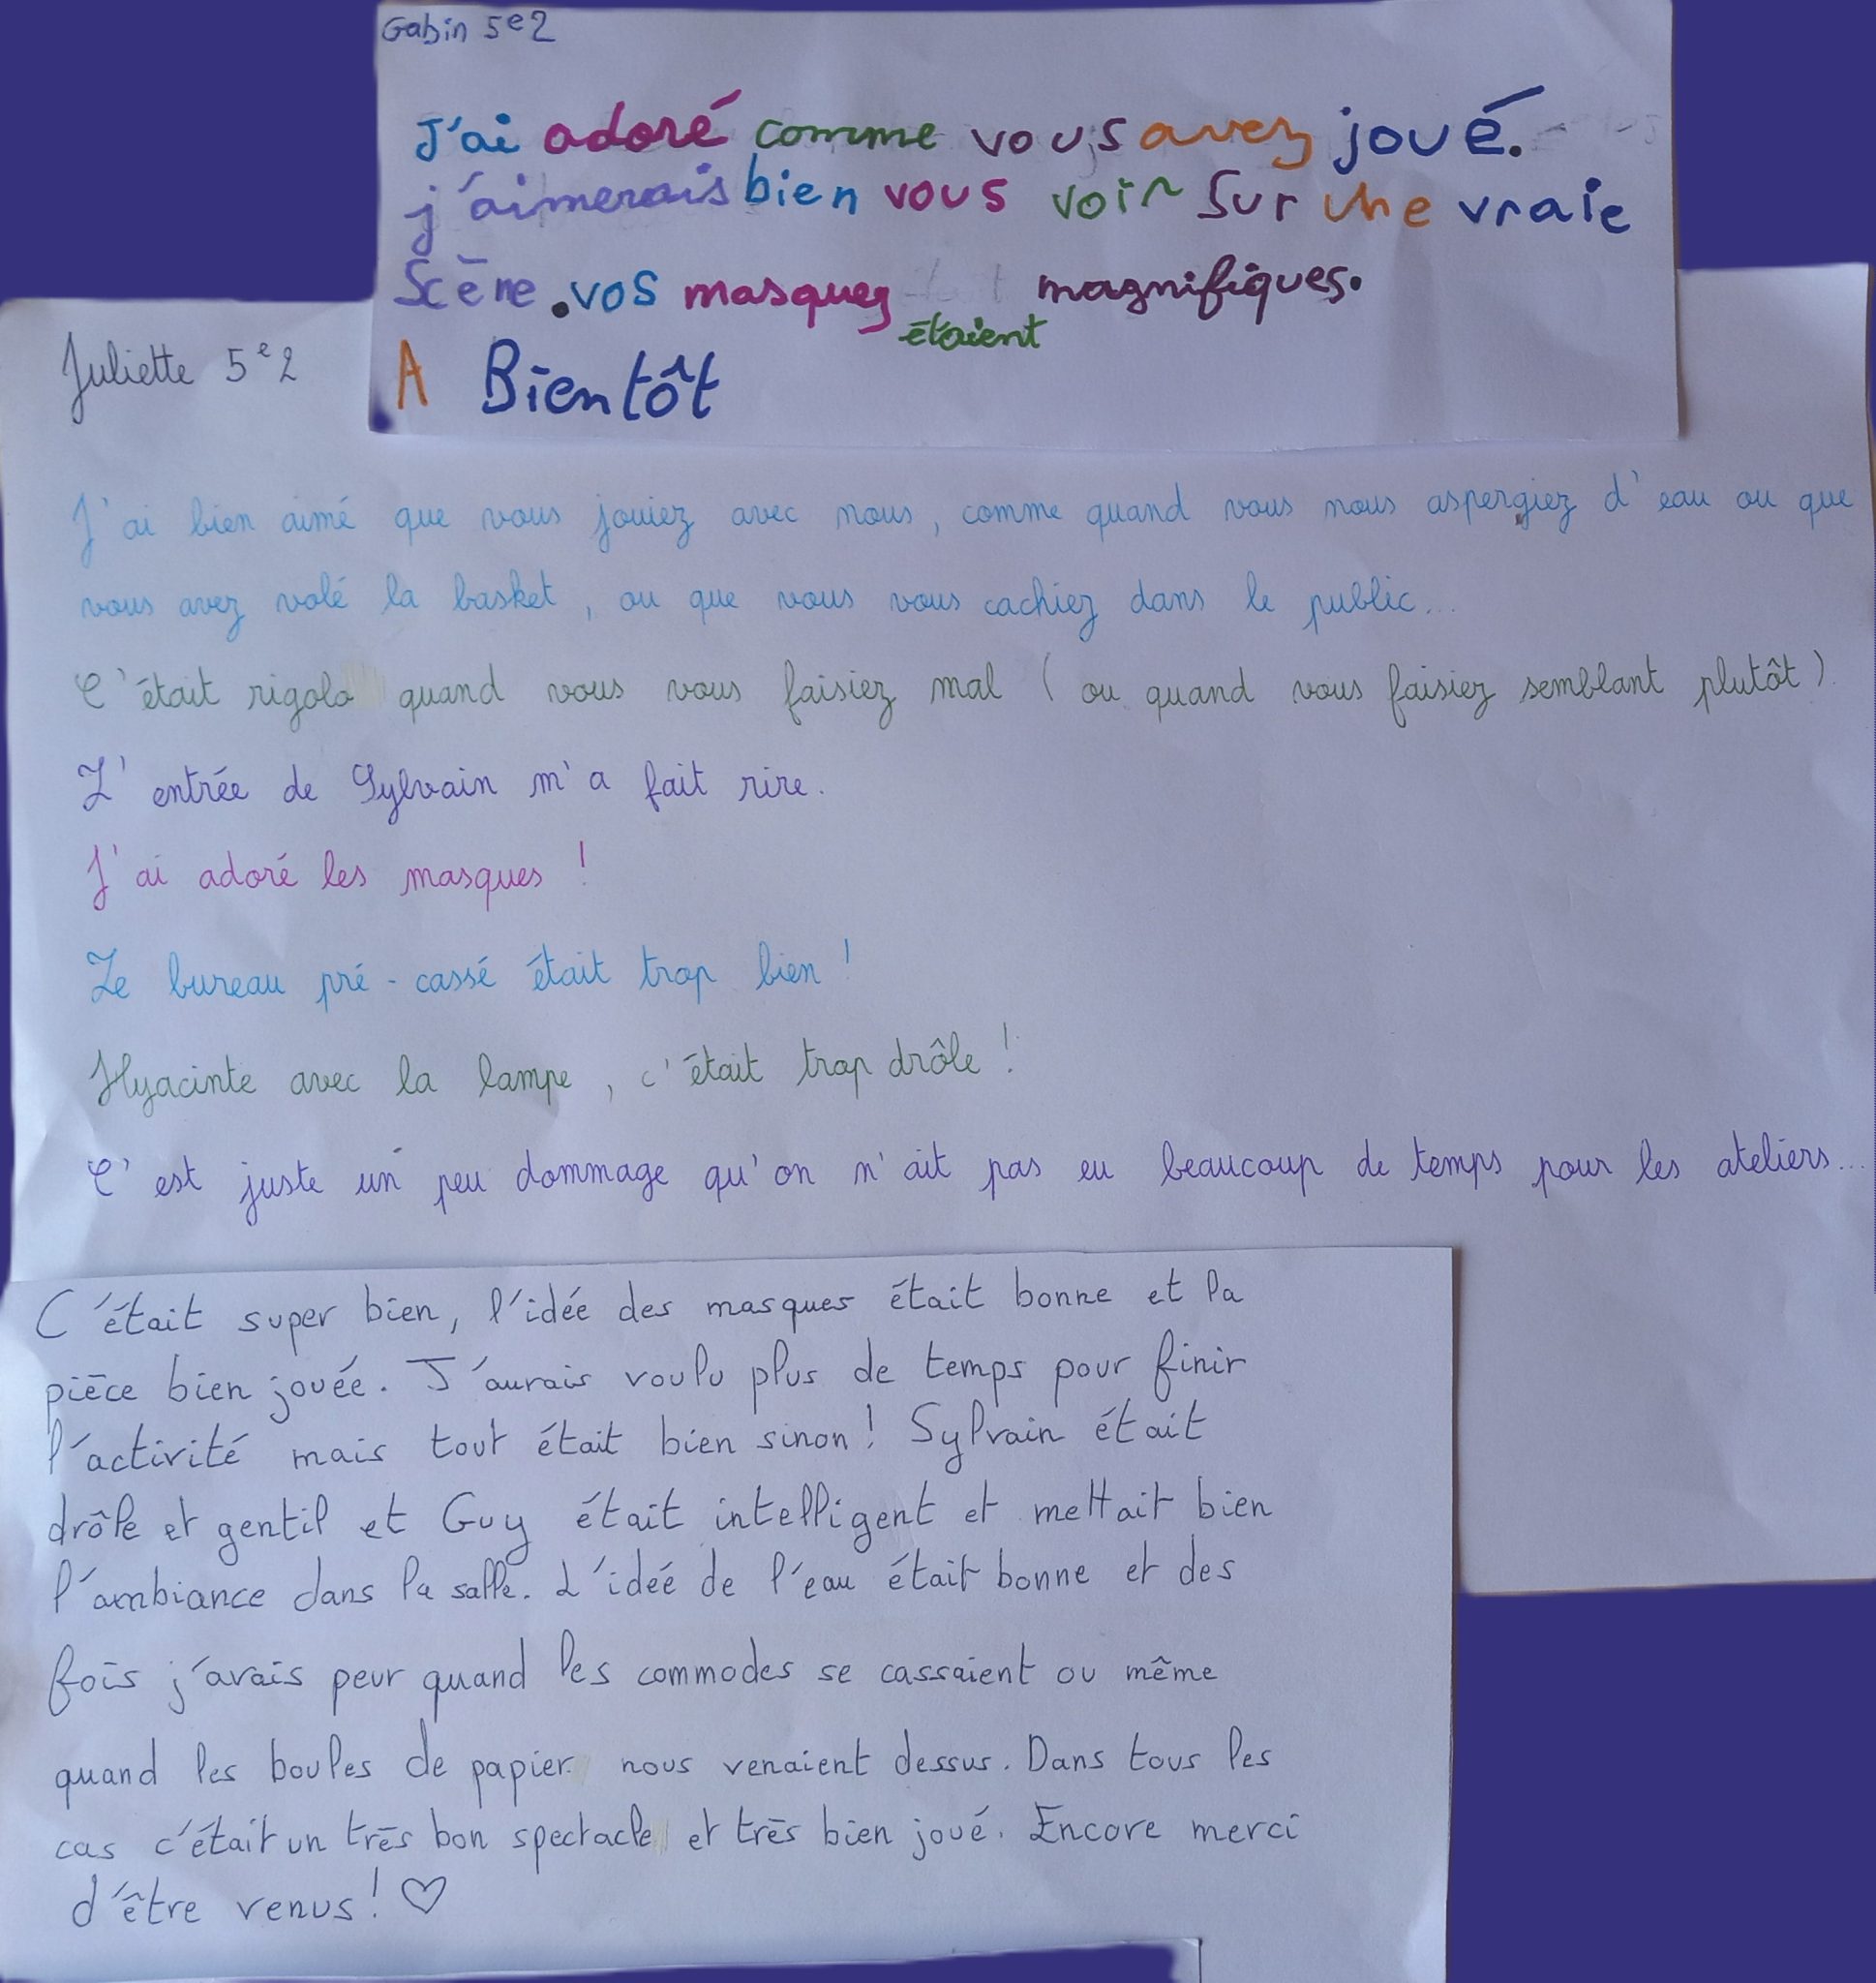 Gabin 5e2
J'ai adoré comme vous avez joué.
j'aimerais bien vous voir sur une vraie
Scène. vos masques étaient magnifiques.
A Bientôt
Juliette 5e2
J'ai bien aimé que vous jouiez avec nous, comme quand vous nous aspergiez d'eau ou que
vous avez volé la basket, ou que vous vous cachiez dans le public...
C'était rigolo quand vous vous faisiez mal (ou quand vous faisiez semblant plutôt).
L'entrée de Sylvain m'a fait rire.
J'ai adoré les masques !
Le bureau pré-cassé était trop bien !
Hyacinte avec la lampe, c'était trop drôle !
C'est juste un peu dommage qu'on n'ait pas eu beaucoup de temps pour les ateliers...
C'était super bien, l'idée des masques était bonne et la
pièce bien jouée. J'aurais voulu plus de temps pour finir
l'activité mais tout était bien sinon! Sylvain était
drôle et gentil et Guy était intelligent et mettait bien
l'ambiance dans la salle. L'idée de l'eau était bonne et des
fois j'avais peur quand les commodes se cassaient ou même
quand les boules de papier nous venaient dessus. Dans tous les
cas c'était un très bon spectacle et très bien joué. Encore merci
d'être venus! ♡